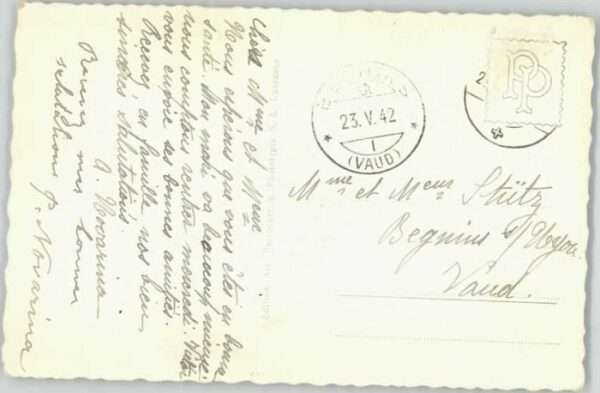 Chère Mme et Meur
Nous espérons que vous êtes en bonne
santé. Mon mari va beaucoup mieux.
nous comptons rentrer mercredi. Victor
vous envoie ses bonnes amitiés.
Recevez en famille nos bien
sincères salutations.
A. Novarina
Recevez mes bonnes
salutations P. Novarina
23.V.42
1
(VAUD)
2
PP
Mme et Meur Stütz
Begnins s/Nyon.
Vaud.